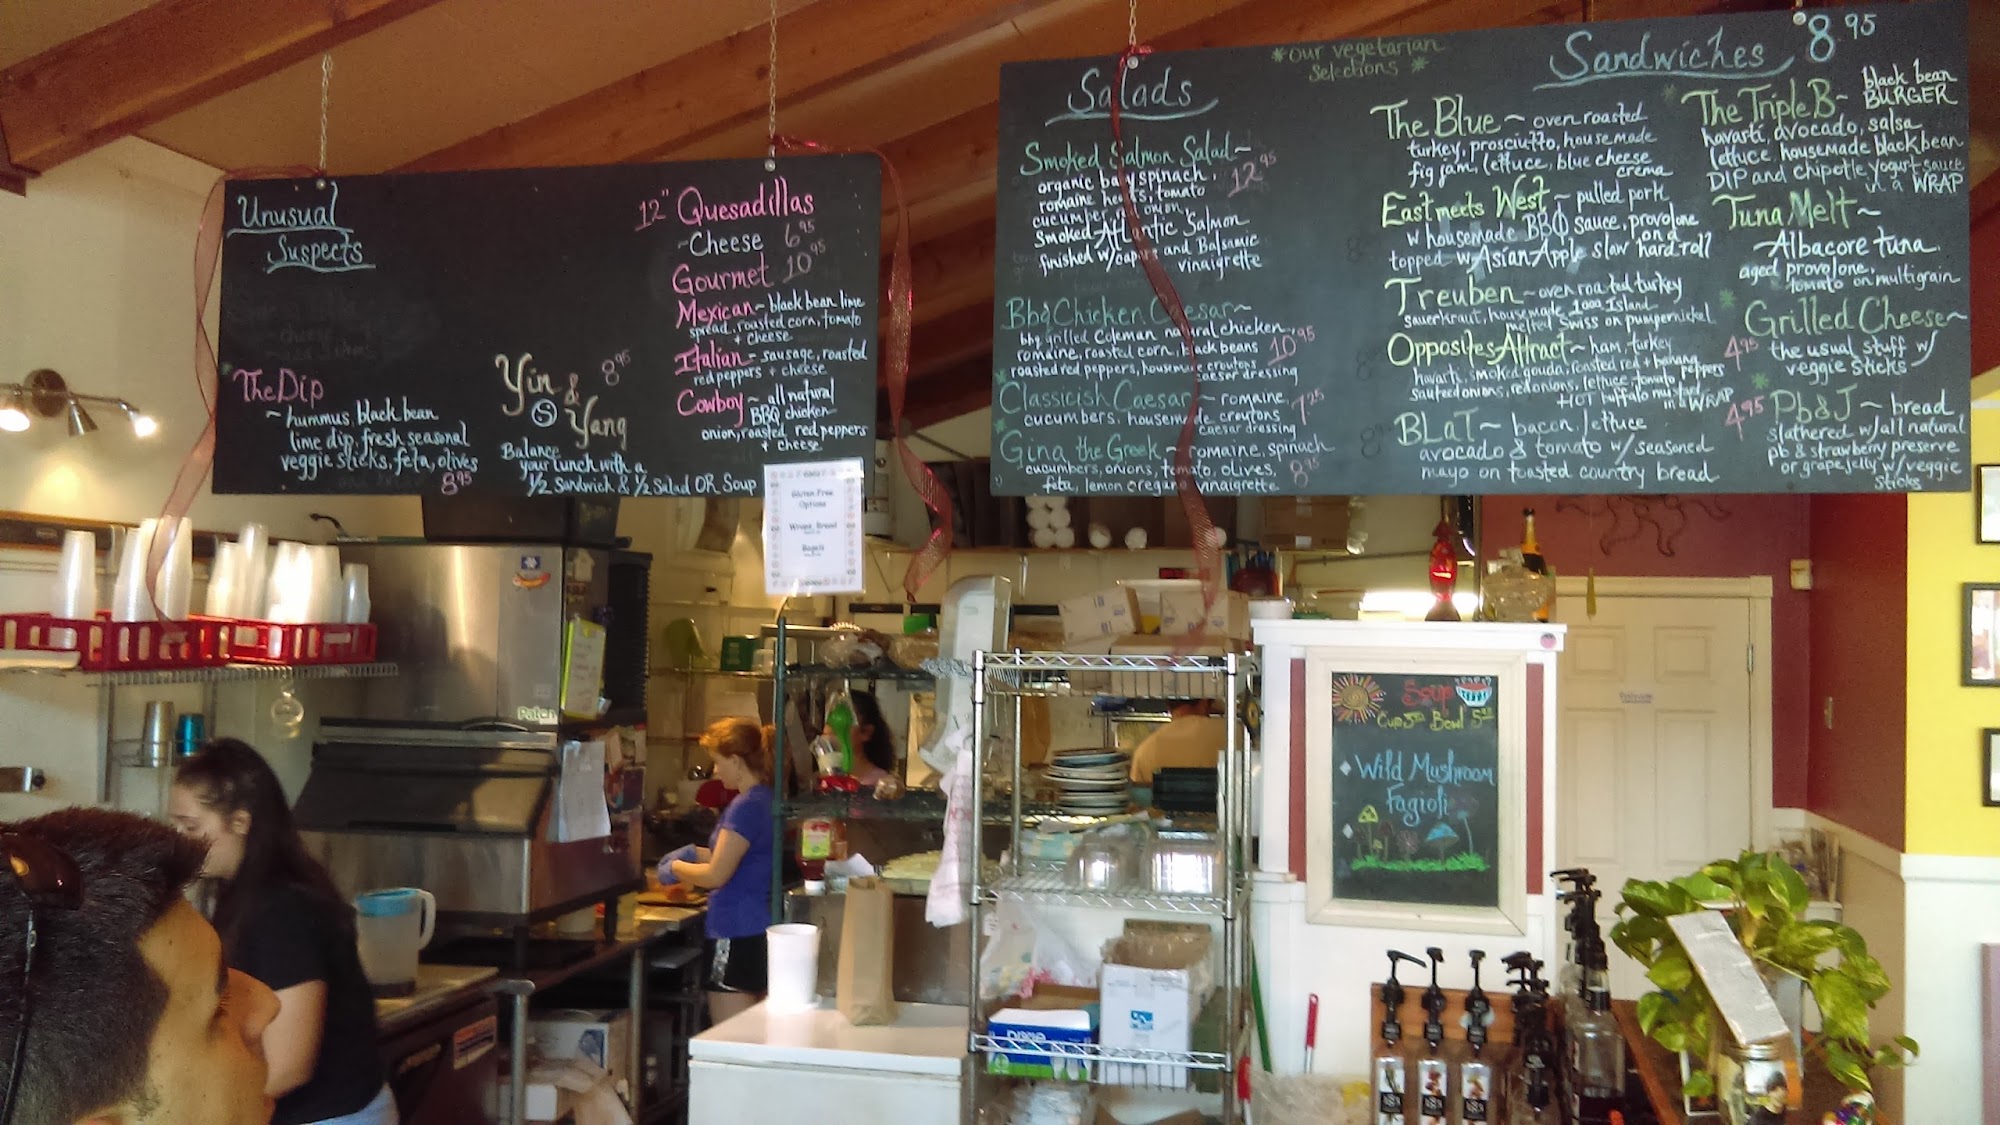 Unusual
Suspects
The Dip
~ hummus, black bean
lime dip, fresh seasonal
veggie sticks, feta, olives
8.95
Yin &
Yang
8.95
Balance
your lunch with a
1/2 sandwich & 1/2 Salad OR Soup
12" Quesadillas
~Cheese 6.95
Gourmet 10.95
Mexican~ black bean lime
spread, roasted corn, tomato
+ cheese
Italian~ sausage, roasted
red peppers + cheese
Cowboy~ all natural
BBQ chicken
onion, roasted red peppers
+ cheese
Gluten Free
Options
Wraps, Bread
Bagels
Salads
Smoked Salmon Salad~
organic baby spinach,
romaine hearts, tomato
12.95
cucumber, red onion,
Smoked Atlantic Salmon
finished w/capers and Balsamic
vinaigrette
Bbq Chicken Caesar~
bbq grilled Coleman natural chicken,
romaine, roasted corn, black beans
10.95
roasted red peppers, housemade croutons
caesar dressing
*Classicish Caesar~ romaine,
cucumbers, housemade croutons
caesar dressing
7.25
*Gina the Greek~ romaine, spinach
cucumbers, onions, tomato, olives,
feta, lemon oregano vinaigrette
8.95
*our vegetarian
selections *
Sandwiches 8.95
The Blue~ oven roasted
turkey, prosciutto, housemade
fig jam, lettuce, blue cheese
crema
East meets West~ pulled pork
w housemade BBQ sauce, provolone
on a
topped w/Asian Apple slaw hard roll
Treuben~ oven roasted turkey
sauerkraut, housemade 1000 Island
melted Swiss on pumpernickel
Opposites Attract~ ham, turkey
havarti, smoked gouda, roasted red + banana
peppers
sauteed onions, red onions, lettuce, tomato
HOT buffalo mustard
in a WRAP
BLaT~ bacon, lettuce
avocado & tomato w/ seasoned
mayo on toasted country bread
*The Triple B~ black bean
BURGER
havarti, avocado, salsa
lettuce, housemade black bean
DIP and chipotle yogurt sauce
in a WRAP
Tuna Melt~
Albacore tuna
aged provolone,
tomato on multigrain
*Grilled Cheese~
4.95 the usual stuff w/
veggie sticks
*Pb&J~ bread
4.95 slathered w/all natural
pb & strawberry preserve
or grape jelly w/veggie
sticks
Soup
Cup Bowl
Wild Mushroom
Fagioli